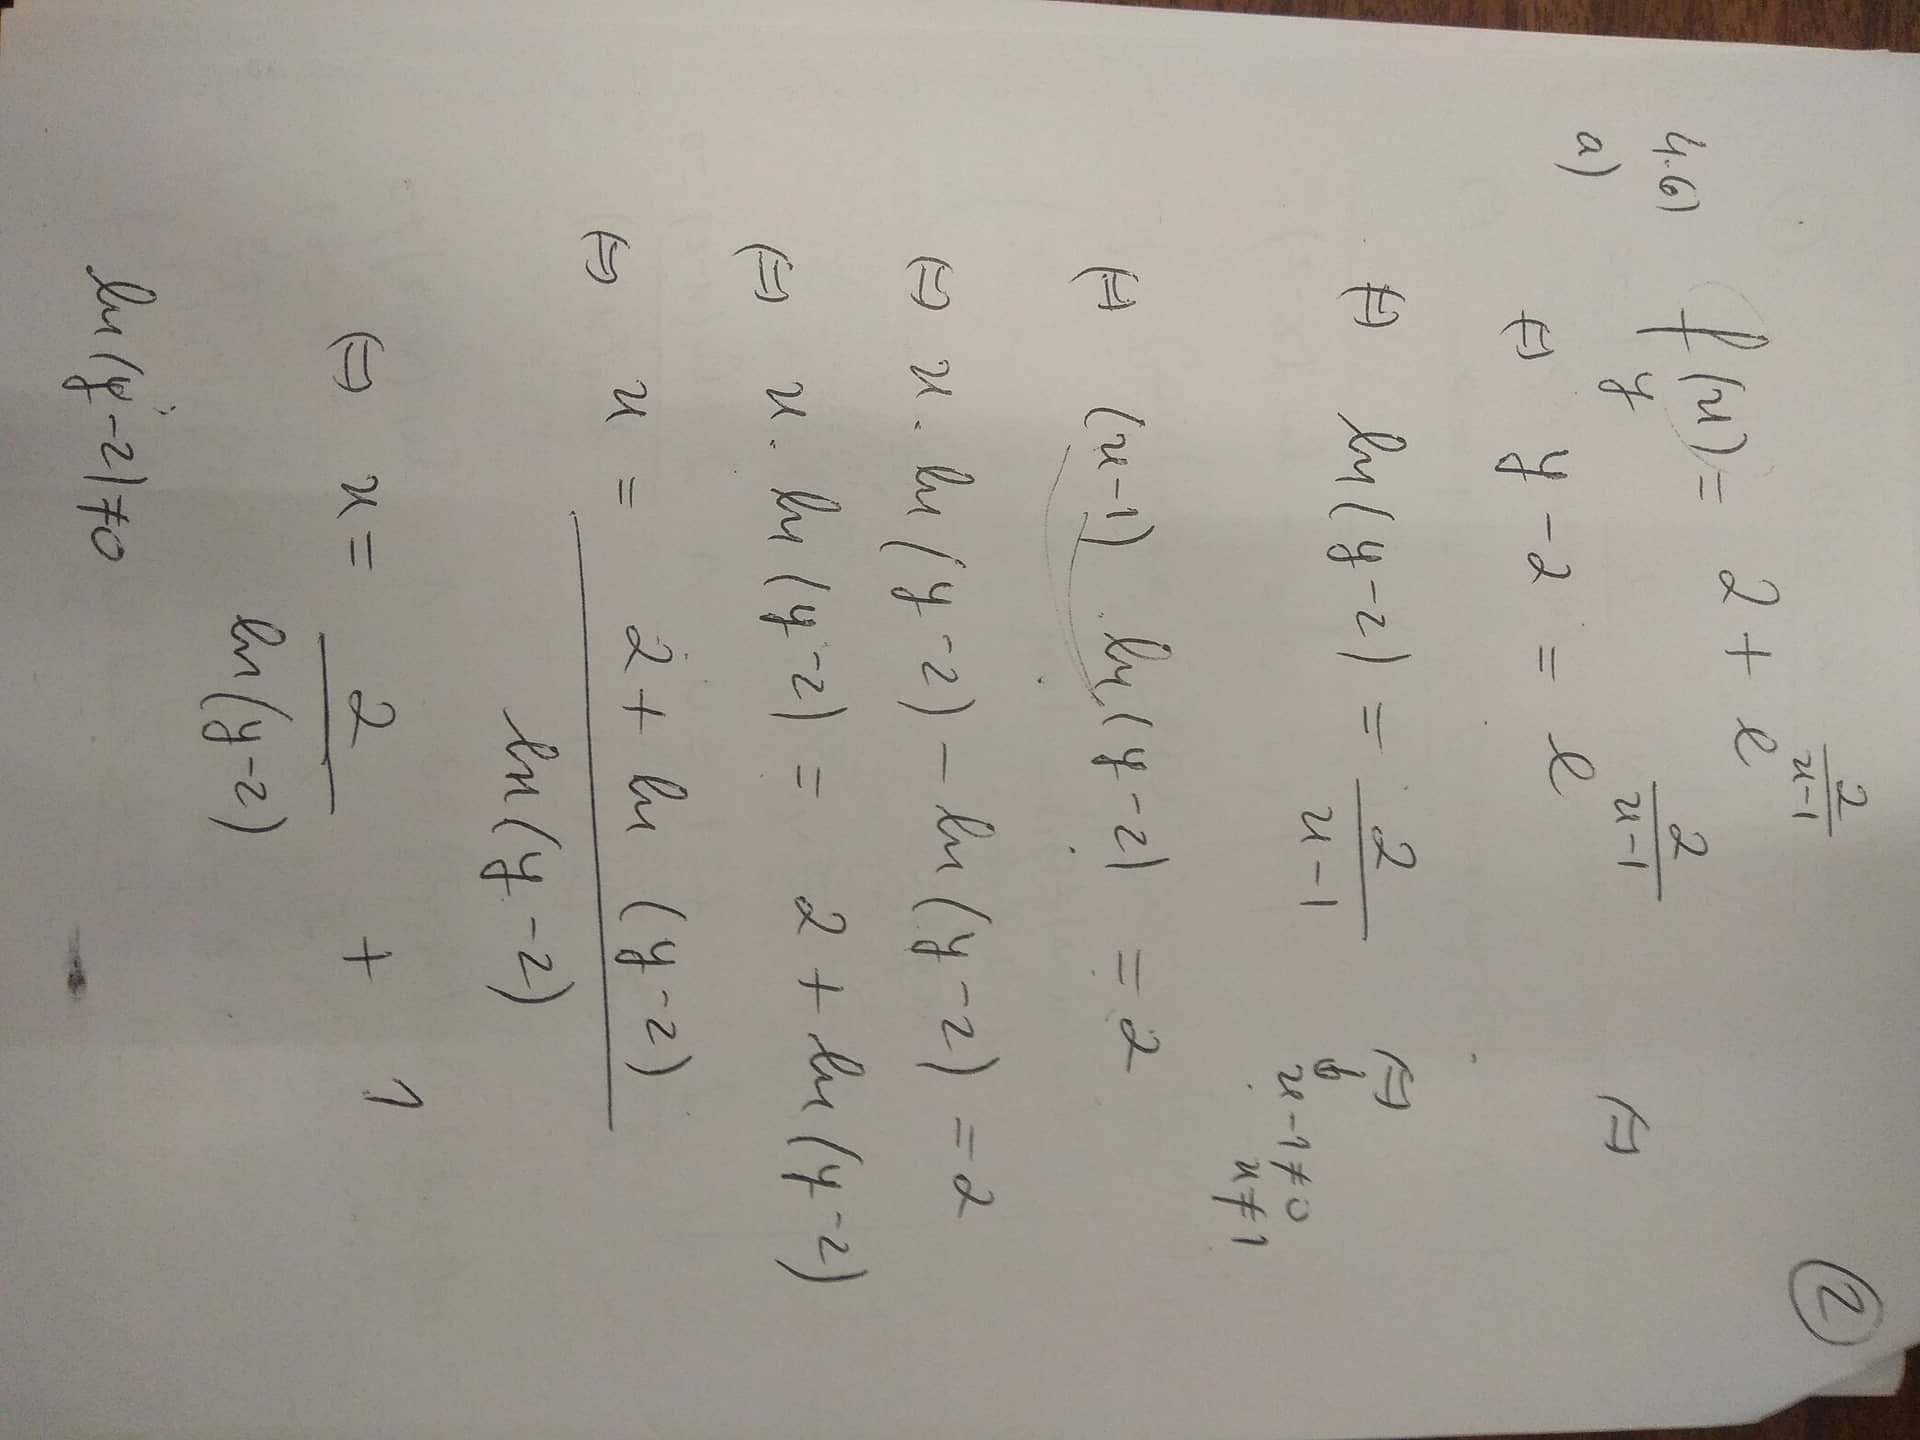 ②
4.6) f(x) = 2 + e^{\frac{2}{x-1}}
a) y
⇔ y - 2 = e^{\frac{2}{x-1}} ⇔
⇔ ln(y-2) = \frac{2}{x-1} ⇔
x-1≠0
x≠1
⇔ (x-1) ln(y-2) = 2
⇔ x. ln(y-2) - ln(y-2) = 2
⇔ x. ln(y-2) = 2 + ln(y-2)
⇔ x = \frac{2 + ln(y-2)}{ln(y-2)}
⇔ x = \frac{2}{ln(y-2)} + 1
ln(y-2)≠0